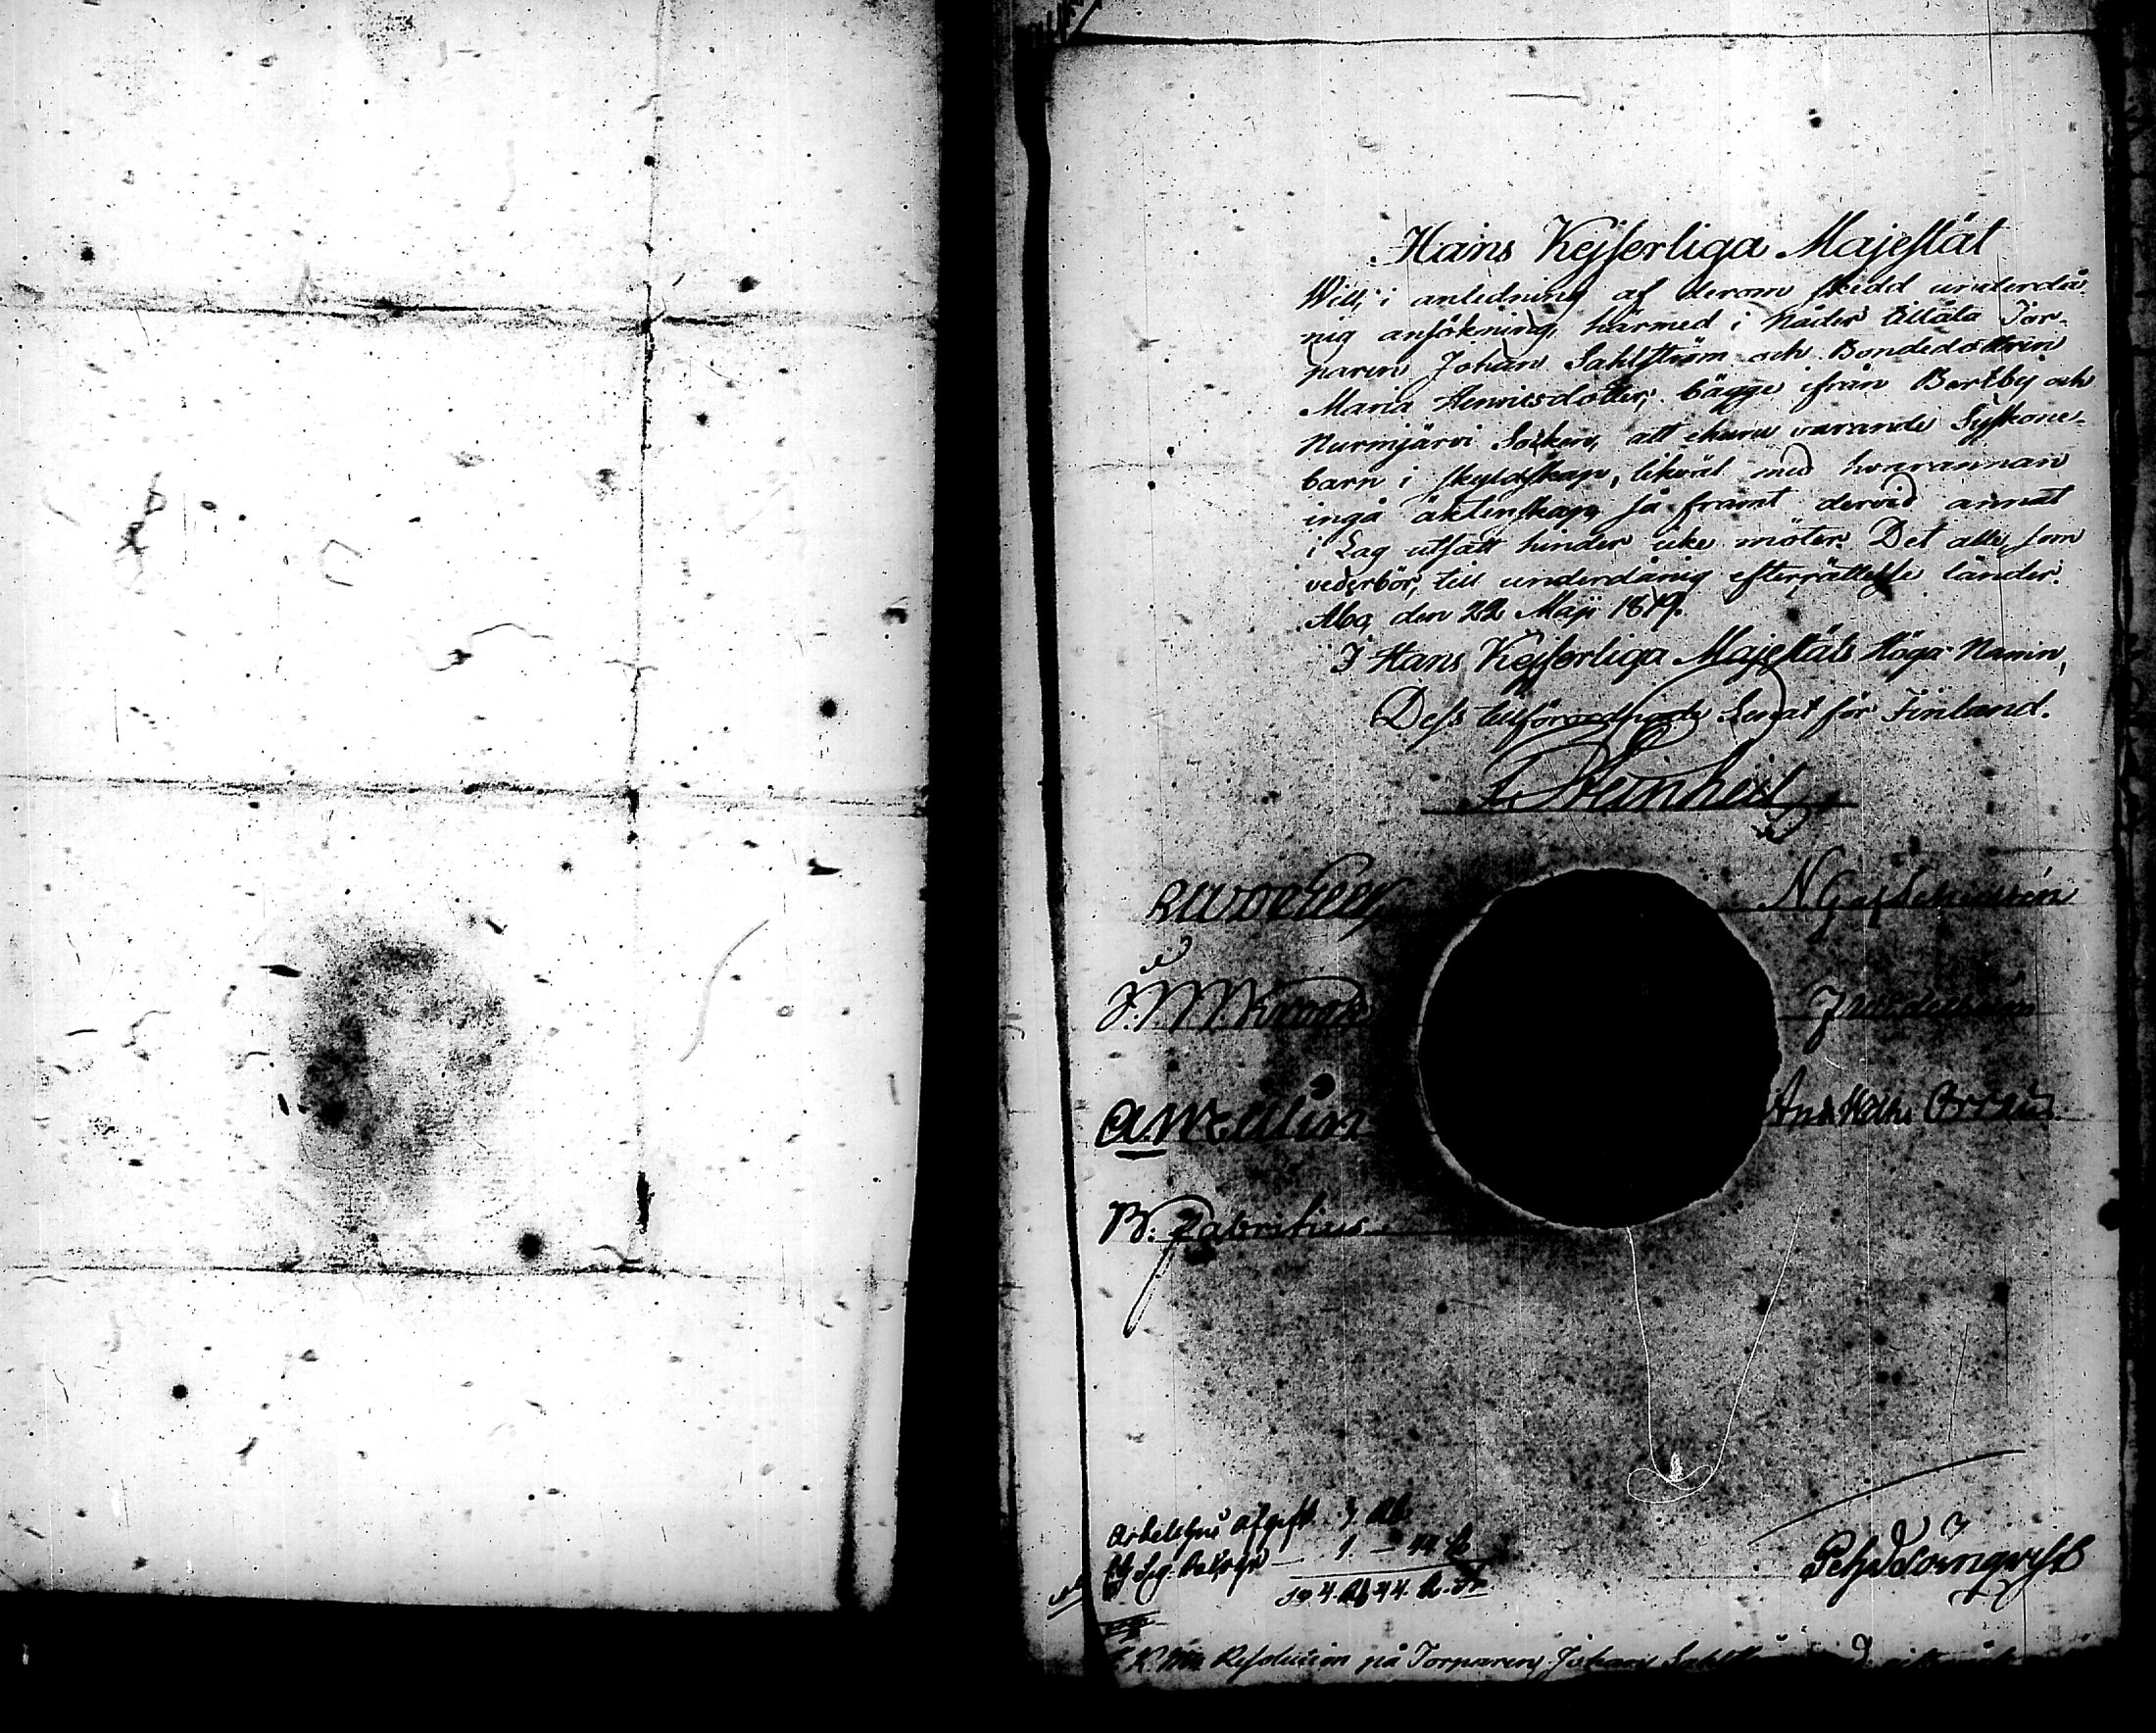 Hans Kejserliga Majestät
Will, i anledning af derom skedd underdå-
nig ansökning, härmed i Nåder tillåta Tor-
paren Johan Sahlström och Bondedottren
Maria Henricsdotter, bägge ifrån Bertby och
Nurmijärvi Socken, att ehuru varande Syskone-
barn i skyldskap, likväl med hvarannan
ingå äktenskap, så framt dervid annat
i Lag utsatt hinder icke möter. Det alle, som
vederbör, till underdånig efterrättelse länder.
Åbo, den 22 Maji 1819.
I Hans Kejserliga Majestäts Höga Namn,
Dess tillförordnade Senat för Finland.
F. Steinheil
N. G. af Schultén
A. Wallin
B. Fabritius
Arbetshus afgift 3 Rb
1. — 44. k
4. Rb 44. k.
Pehr Törnqvist
Resolution på Torparen Johan